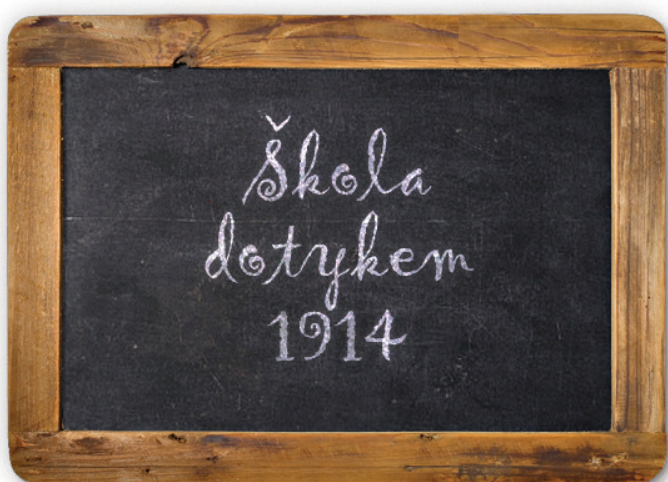 Škola
dotykem
1914